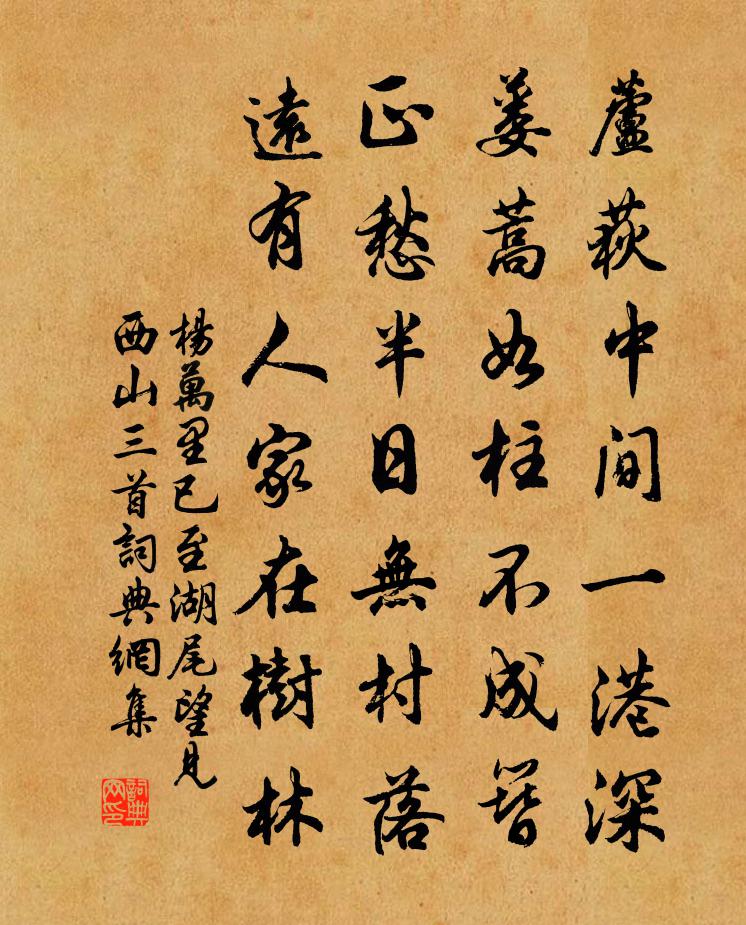 蘆荻中間一港深
蔞蒿如柱不成簪
正愁半日無村落
遠有人家在樹林
楊萬里已至湖尾望見
西山三首詞典網集
詞典
网印